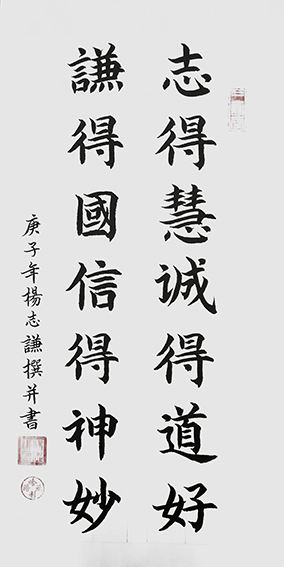 志得慧诚得道好
謙得國信得神妙
庚子年楊志謙撰并書